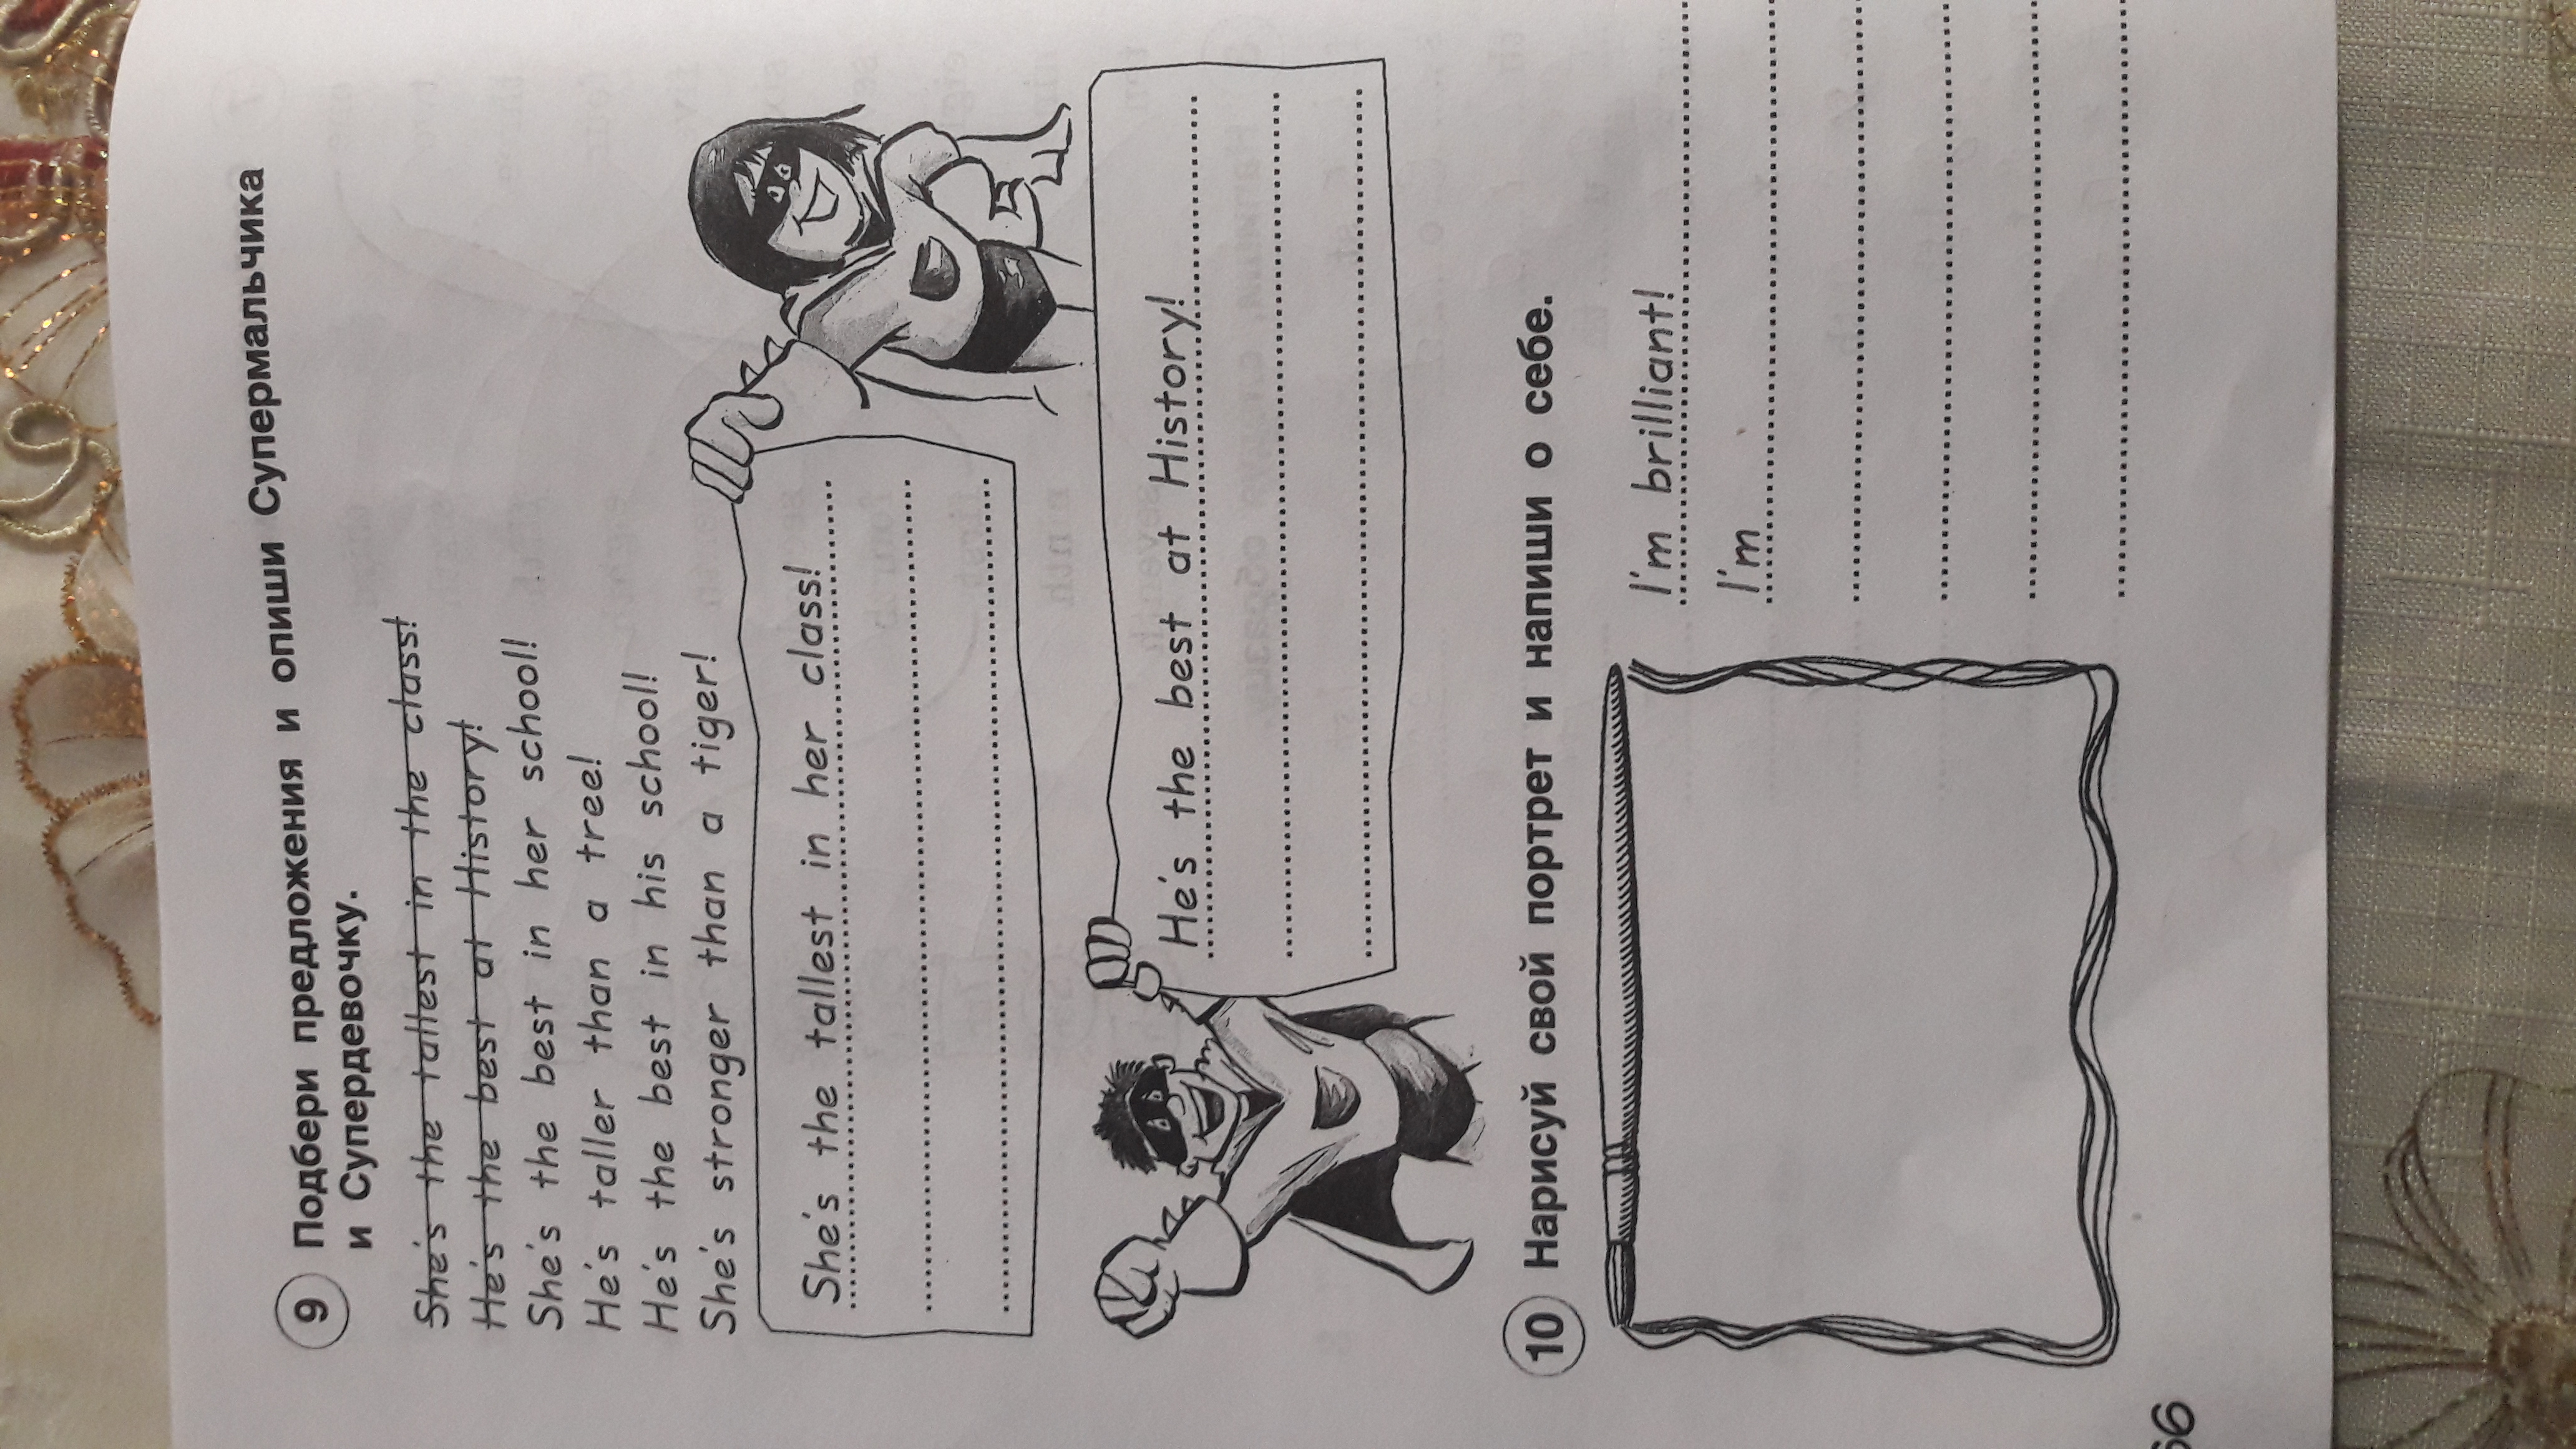 9 Подбери предложения и опиши Супермальчика
и Супердевочку.
She's the tallest in the class!
He's the best at History!
She's the best in her school!
He's taller than a tree!
He's the best in his school!
She's stronger than a tiger!
She's the tallest in her class!
He's the best at History!
10 Нарисуй свой портрет и напиши о себе.
I'm brilliant!
I'm
66